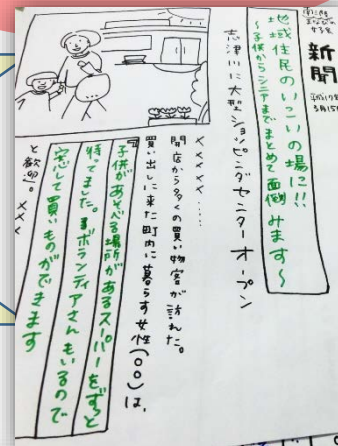 新聞
3月15日
地域住民のいこいの場に!!
〜子供からシニアまでまとめて面倒みます〜
志津川に大型ショッピングセンターオープン
××××……
開店から多くの買い物客が訪れた。
買い出しに来た町内に暮らす女性(〇〇)は、
子供があそべる場所があるスーパーをずっと
待ってました。ボランティアさんもいるので
安心して買いものができます
と歓迎。×××